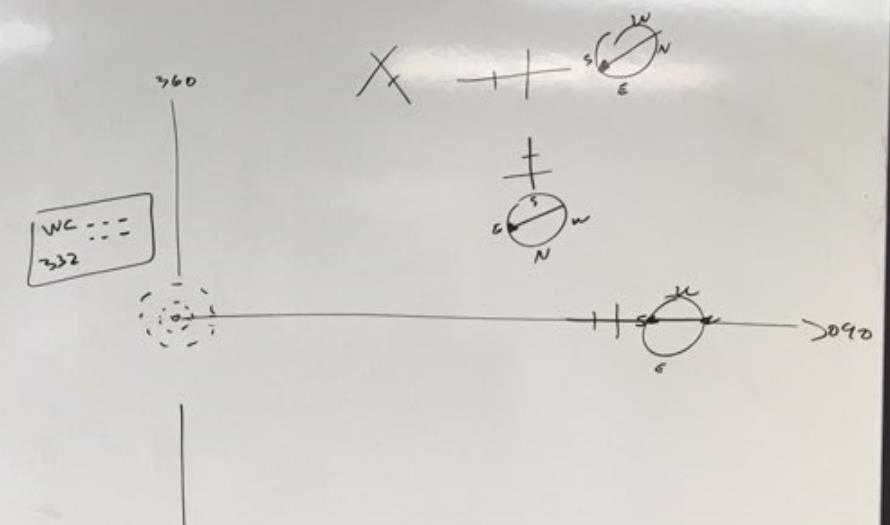 360
W
S N
E
S
E W
N
WC
332
S
E
090